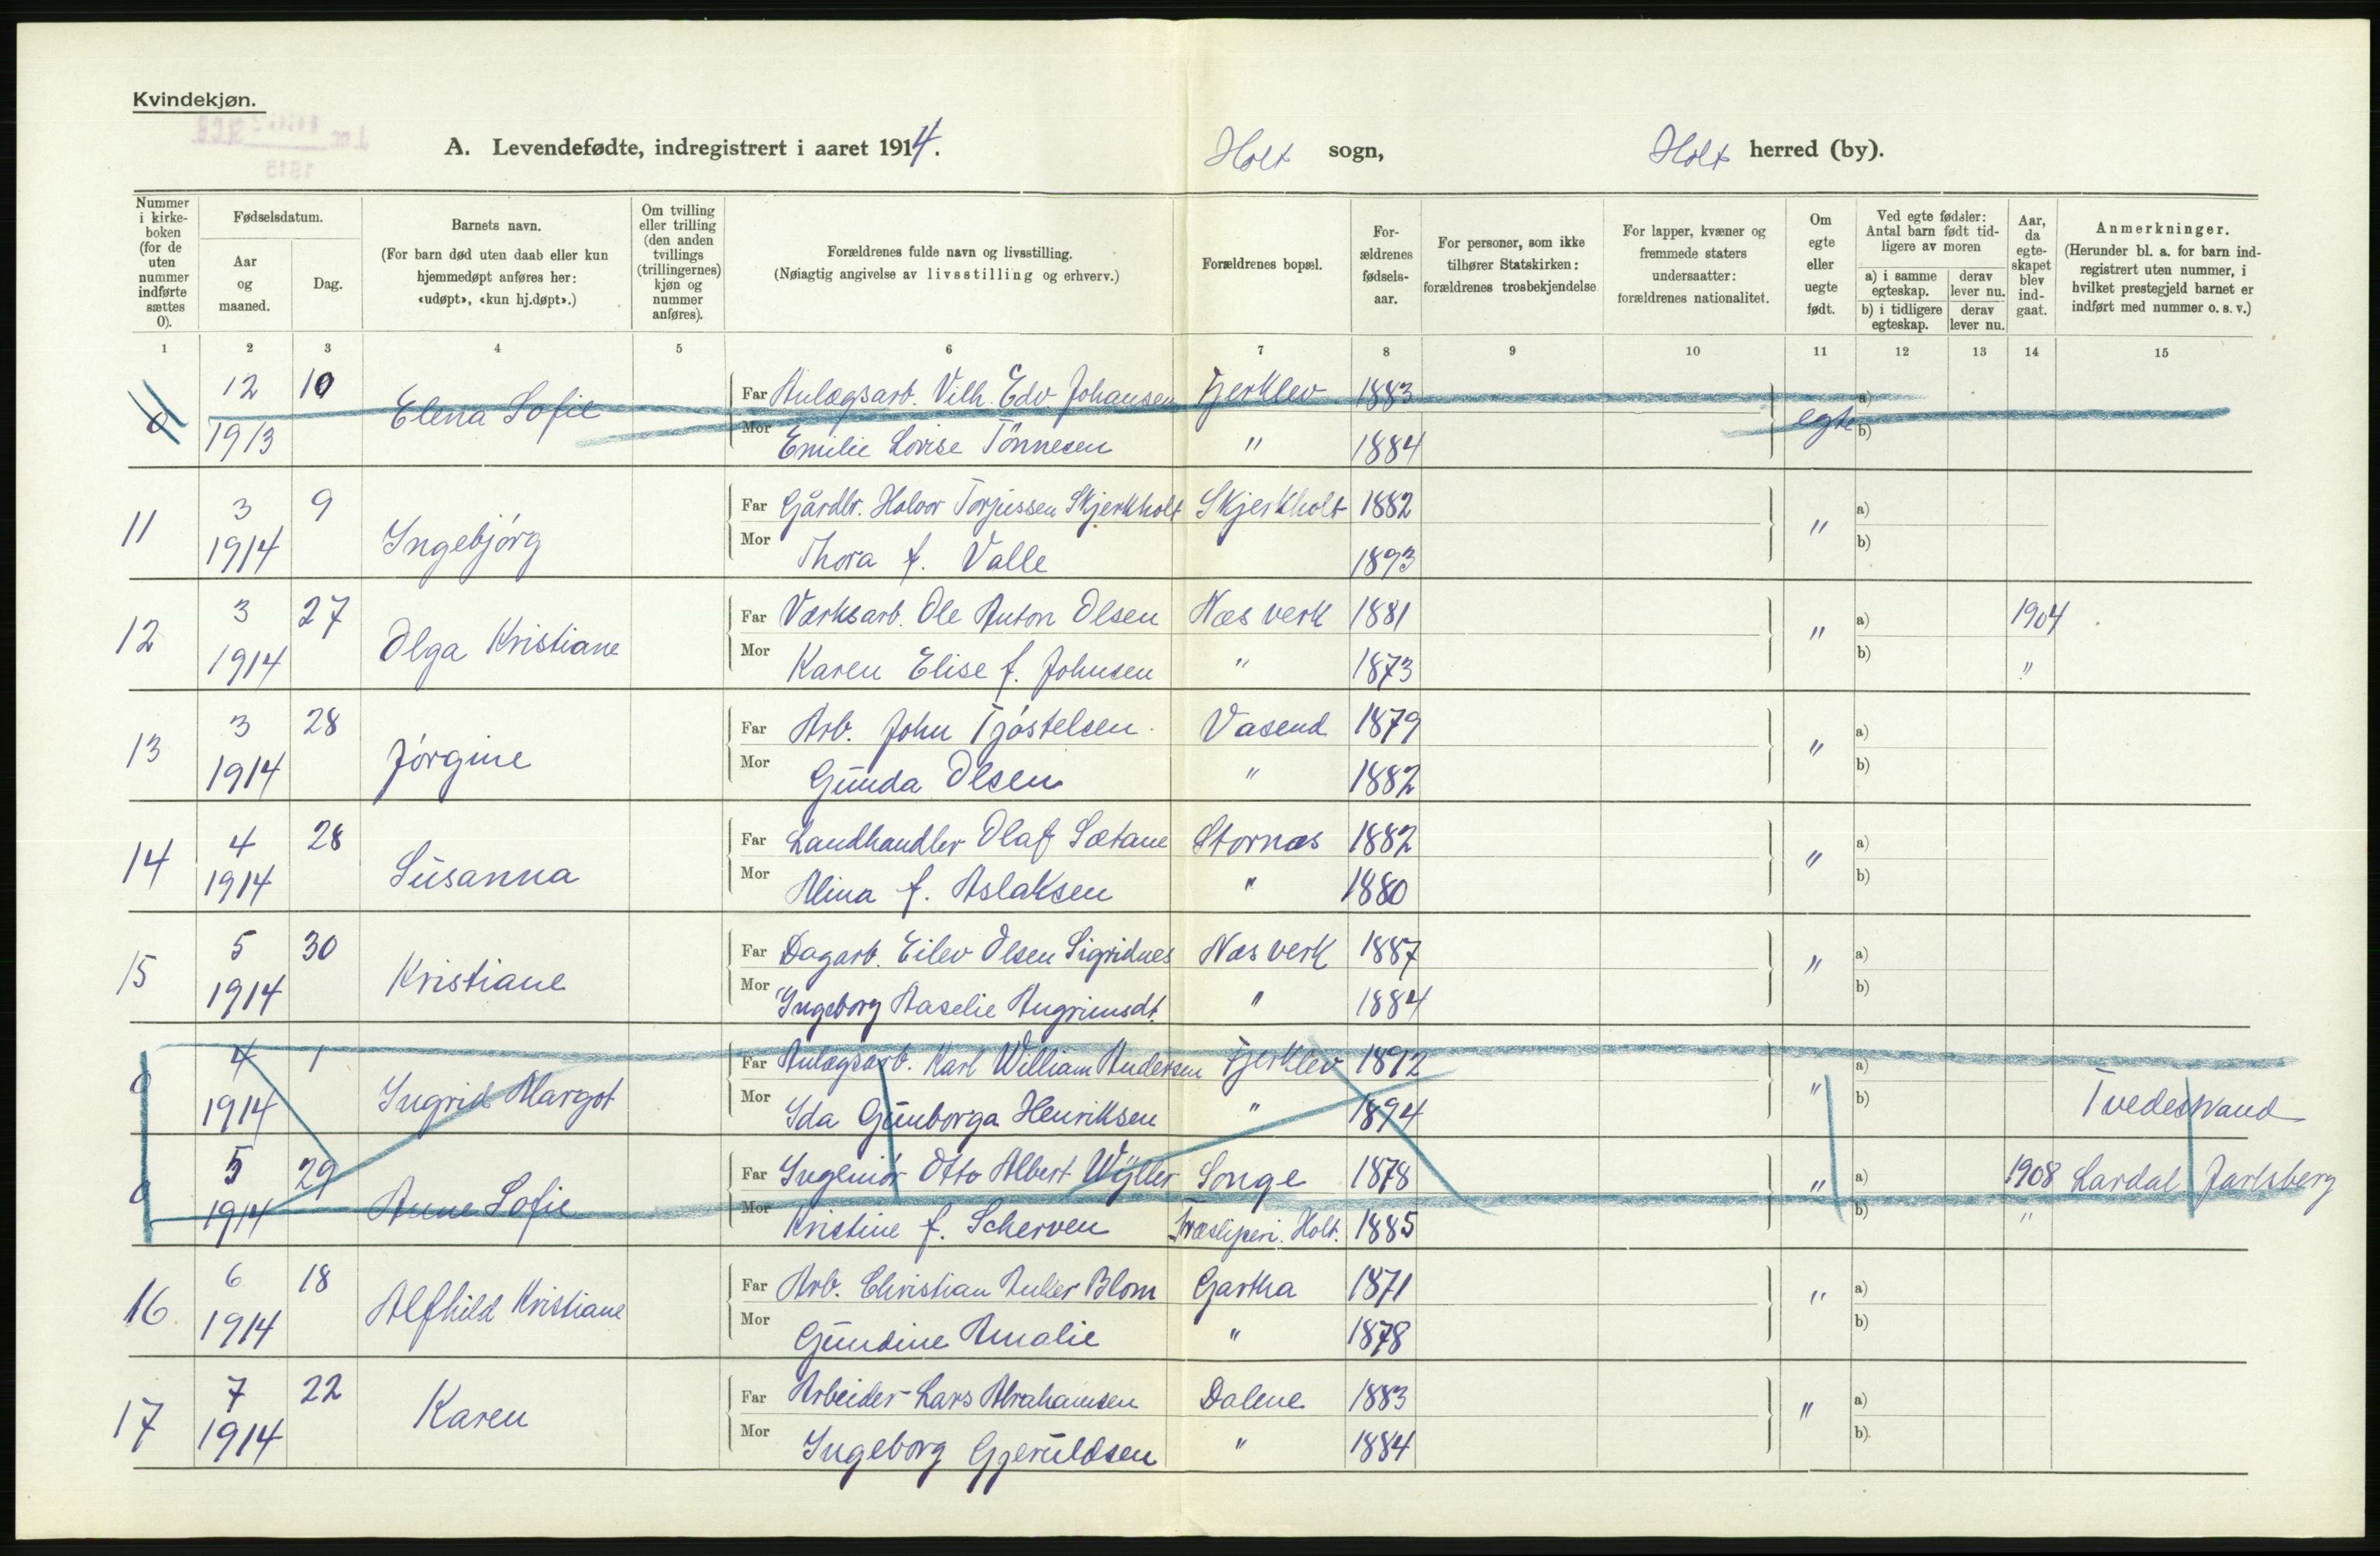 Kvindekjøn.
A. Levendefødte, indregistrert i aaret 1914. Holt sogn, Holt herred (by).
Nummer i kirke-boken (for de uten nummer indførte sættes 0).
Fødselsdatum.
Aar og maaned.
Dag.
Barnets navn.
(For barn død uten daab eller kun hjemmedøpt anføres her: «udøpt», «kun hj.døpt».)
Om tvilling eller trilling (den anden tvillings (trillingernes) kjøn og nummer anføres).
Forældrenes fulde navn og livsstilling.
(Nøiagtig angivelse av livsstilling og erhverv.)
Forældrenes bopæl.
For-ældrenes fødsels-aar.
For personer, som ikke tilhører Statskirken: forældrenes trosbekjendelse
For lapper, kvæner og fremmede staters undersaatter: forældrenes nationalitet.
Om egte eller uegte født.
Ved egte fødsler: Antal barn født tid-ligere av moren
a) i samme egteskap. derav lever nu.
b) i tidligere egteskap. derav lever nu.
Aar, da egte-skapet blev ind-gaat.
Anmerkninger.
(Herunder bl. a. for barn ind-registrert uten nummer, i hvilket prestegjeld barnet er indført med nummer o. s. v.)
1 2 3 4 5 6 7 8 9 10 11 12 13 14 15
0 12 10 Elena Sofie Far Anlægsarb. Vilh. Edv Johansen Fjerklev 1883 egte a)
1913 Mor Emilie Lovise Tönnesen " 1884 b)
11 3 9 Ingebjörg Far Gårdbr. Halvor Torjussen Skjerkholt Skjerkholt 1882 " a)
1914 Mor Thora f. Valle " 1893 b)
12 3 27 Olga Kristiane Far Værksarb. Ole Anton Olsen Næs verk 1881 " a) 1904
1914 Mor Karen Elise f. Johnsen " 1873 b) "
13 3 28 Jörgine Far Arb. John Tjöstelsen Vasend 1879 " a)
1914 Mor Gunda Olsen " 1882 b)
14 4 28 Susanna Far Landhandler Olaf Sætane Stornæs 1882 " a)
1914 Mor Alina f. Aslaksen " 1880 b)
15 5 30 Kristiane Far Dagarb. Eilev Olsen Sigridnes Næs verk 1887 " a)
1914 Mor Ingeborg Aaselie Angrimsdt. " 1884 b)
0 4 1 Ingrid Margot Far Anlægsarb. Karl William Andersen Fjerklev 1892 " a)
1914 Mor Ida Gunborga Henriksen " 1894 b) Tvedestrand
0 5 29 Anne Sofie Far Ingeniör Otto Albert Wyller Songe 1878 " a) 1908 Lardal Jarlsberg
1914 Mor Kristine f. Scherven Træsliperi. Holt. 1885 b) "
16 6 18 Alfhild Kristiane Far Arb. Christian Anker Blom Gartha 1871 " a)
1914 Mor Gundine Amalie " 1878 b)
17 7 22 Karen Far Arbeider Lars Abrahamsen Dalene 1883 " a)
1914 Mor Ingeborg Gjeruldsen " 1884 b)